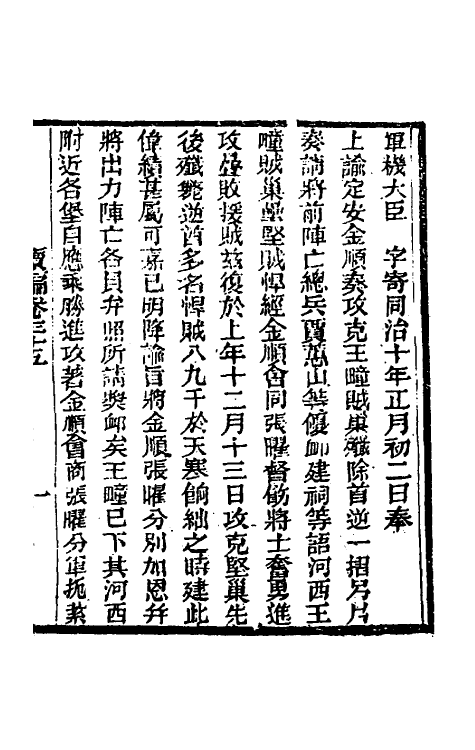 軍機大臣　字寄同治十年正月初二日奉
上諭定安金順奏攻克王疃賊巢殲除首逆一摺另片
奏請將前陣亡總兵賈蔥山等優卹建祠等語河西王
疃賊巢壘堅賊悍經金順會同張曜督飭將士奮勇進
攻疊敗援賊茲復於上年十二月十三日攻克堅巢先
後殲斃逆首多名悍賊八九千於天寒餉絀之時建此
偉績甚屬可嘉已明降諭旨將金順張曜分別加恩幷
將出力陣亡各員弁照所請獎卹矣王疃已下其河西
附近各堡自應乘勝進攻著金順會商張曜分軍扼紮
續編卷三十五
一